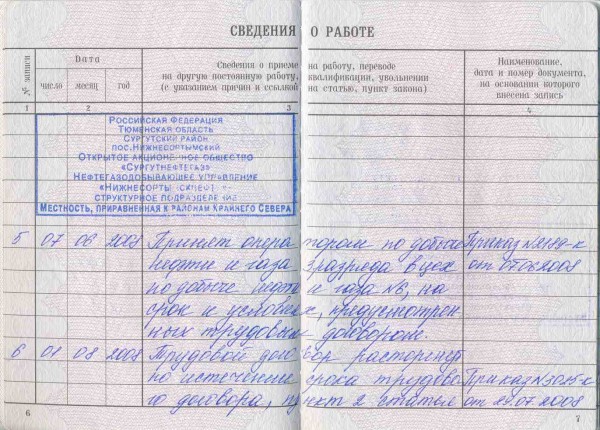 СВЕДЕНИЯ О РАБОТЕ
№ записи
Дата
число месяц год
Сведения о приеме на работу, переводе
на другую постоянную работу, квалификации, увольнении
(с указанием причин и ссылкой на статью, пункт закона)
Наименование,
дата и номер документа,
на основании которого
внесена запись
1 2 3 4
Российская Федерация
Тюменская область
Сургутский район
пос.Нижнесортымский
Открытое акционерное общество
«Сургутнефтегаз»
Нефтегазодобывающее управление
структурное подразделение
Местность, приравненная к районам Крайнего Севера
5 07 06 2008 Принят оператором по добыче Приказ
нефти и газа разряда в цех от
по добыче нефти и газа №6, на
срок и условиях, предусмотрен
ных трудовым договором.
6 01 08 2008 Трудовой договор расторгнут
по истечении срока трудово Приказ
го договора, пункт 2 статьи от 29.07.2008
6 7